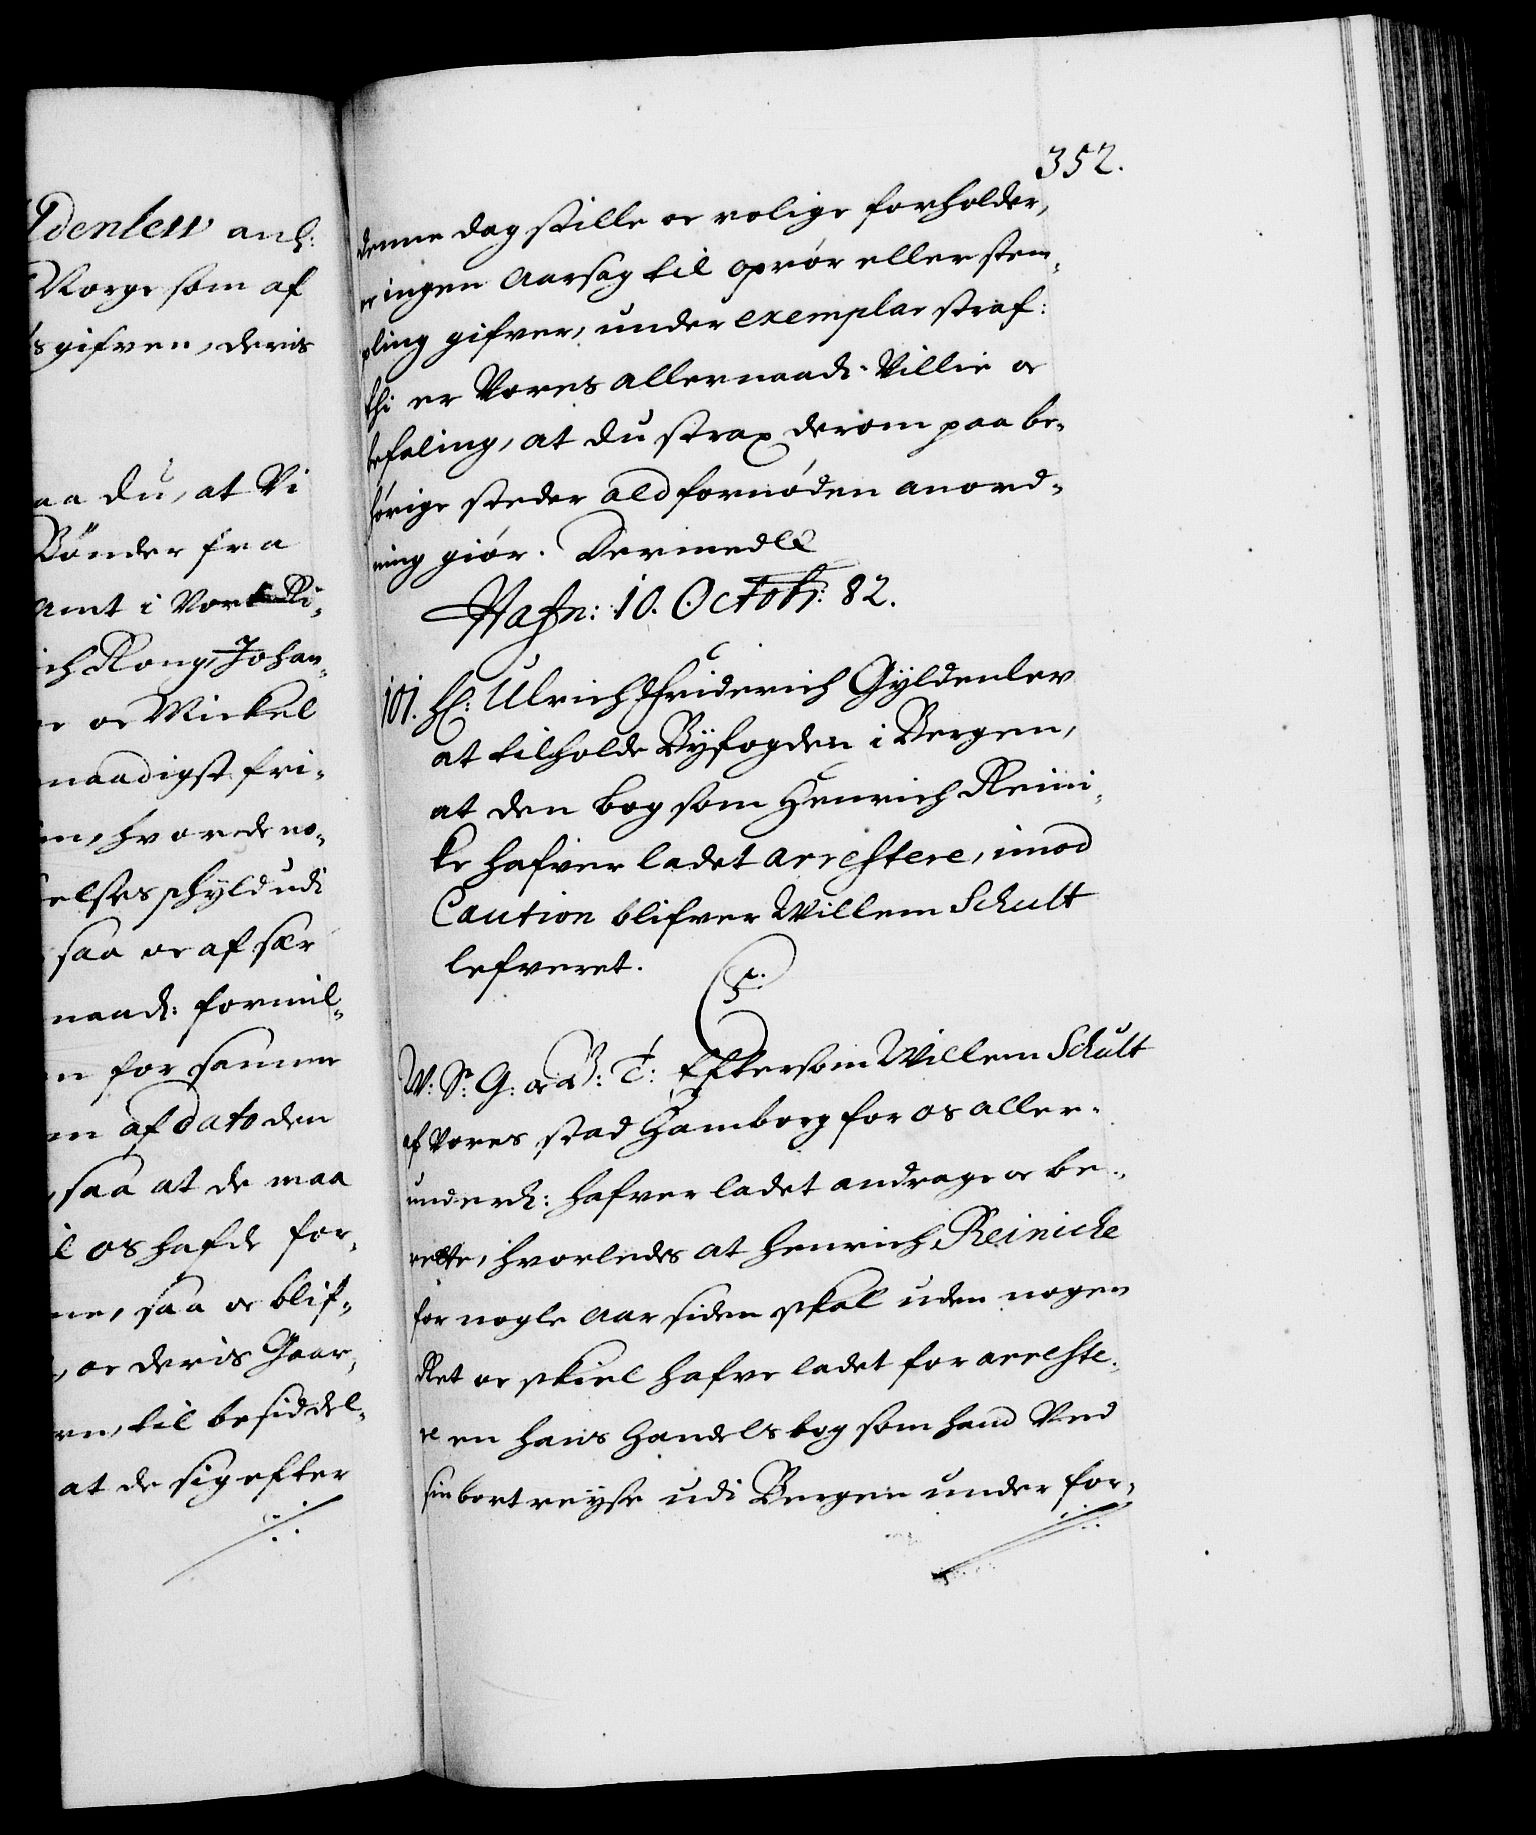 ldenlew anl:
Norge som af
s gifven, deris
aa du, at Vi
Bönder fra
Amt i Vort Ri-
ich Kong Johan-
e oc Mickel
naadigst fri-
en, hvor de no-
elses skyld udi
saa oc af sær
naad: formil-
n for samme
en af dato den
, saa at de maa
il os hafde for-
ne, saa oc blif-
, oc deris Gaar-
ern, til besiddel-
at de sig efter
352.
denne dag stille oc rolige forholder,
oc ingen Aarsag til oprör eller stem-
pling gifver, under exemplar straf:
thi er Vores allernaad: Villie oc
befaling, at du strax derom paa be-
hörige steder ald fornöden anord-
ning giör. Dermed
Hafn: 10. Octob: 82.
101. H: Ulrich Friderich Gyldenlev
at tilholde Byfogden i Bergen,
at den bog som Henrich Reini-
ke hafver ladet arrestere, imod
Caution blifver Willem Schult
lefveret.
C 5.
W: S: G: oc B: T: Eftersom Willem Schult
af Vores stad Hamborg for os aller-
underd: hafver ladet andrage oc be-
rette, hvorledes at Henrich Reinicke
for nogle aar siden skal uden nogen
Ret oc skiel hafve ladet for arreste-
re en hans Handels bog som hand Ved
sin bortreyse udi Bergen under for-